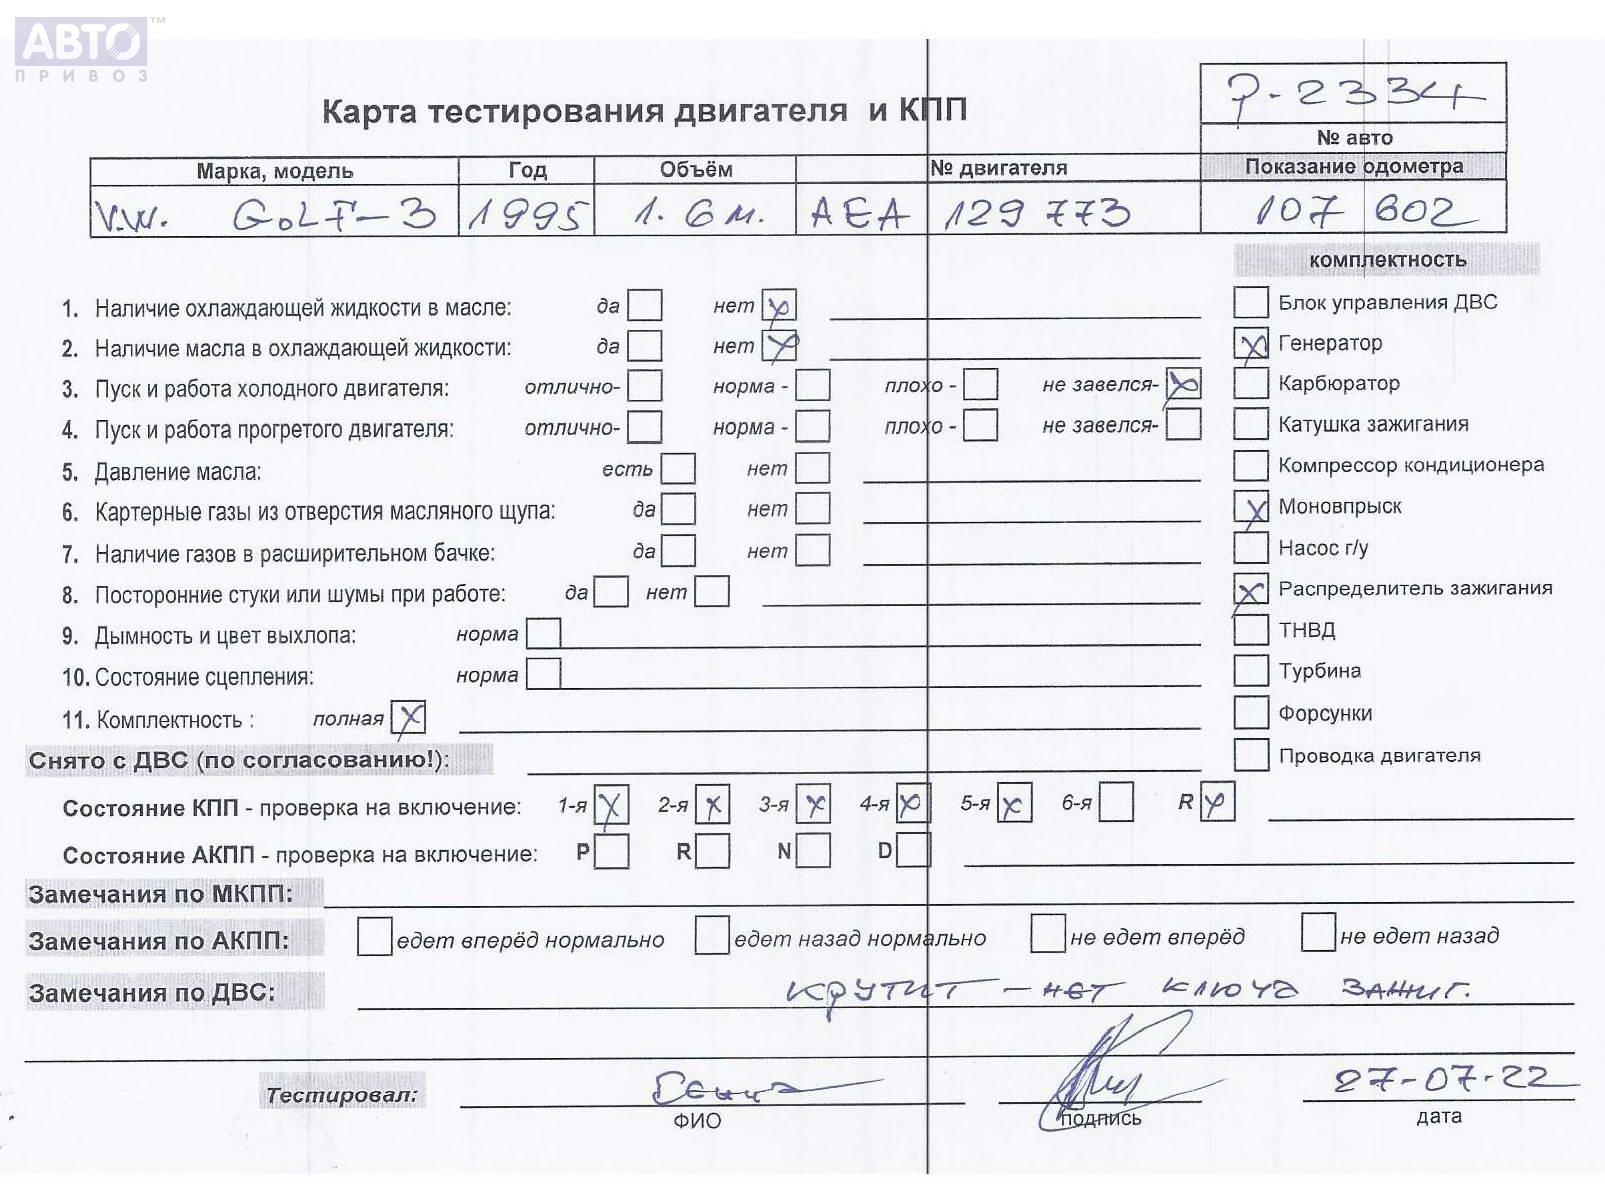 АВТО™
ПРИВОЗ
Р-2334
Карта тестирования двигателя и КПП
№ авто
Марка, модель Год Объём № двигателя Показание одометра
V.W. GOLF-3 1995 1.6 м. AEA 129 773 107 602
комплектность
1. Наличие охлаждающей жидкости в масле: да нет x
Блок управления ДВС
2. Наличие масла в охлаждающей жидкости: да нет x
x Генератор
3. Пуск и работа холодного двигателя: отлично- норма - плохо - не завелся- x
Карбюратор
4. Пуск и работа прогретого двигателя: отлично- норма - плохо - не завелся-
Катушка зажигания
5. Давление масла: есть нет
Компрессор кондиционера
6. Картерные газы из отверстия масляного щупа: да нет
x Моновпрыск
7. Наличие газов в расширительном бачке: да нет
Насос г/у
8. Посторонние стуки или шумы при работе: да нет
x Распределитель зажигания
9. Дымность и цвет выхлопа: норма
ТНВД
10. Состояние сцепления: норма
Турбина
11. Комплектность : полная x
Форсунки
Снято с ДВС (по согласованию!):
Проводка двигателя
Состояние КПП - проверка на включение: 1-я x 2-я x 3-я x 4-я x 5-я x 6-я R x
Состояние АКПП - проверка на включение: P R N D
Замечания по МКПП:
Замечания по АКПП: едет вперёд нормально едет назад нормально не едет вперёд не едет назад
Замечания по ДВС: крутит - нет ключа зажиг.
Тестировал: 27-07-22
ФИО подпись дата